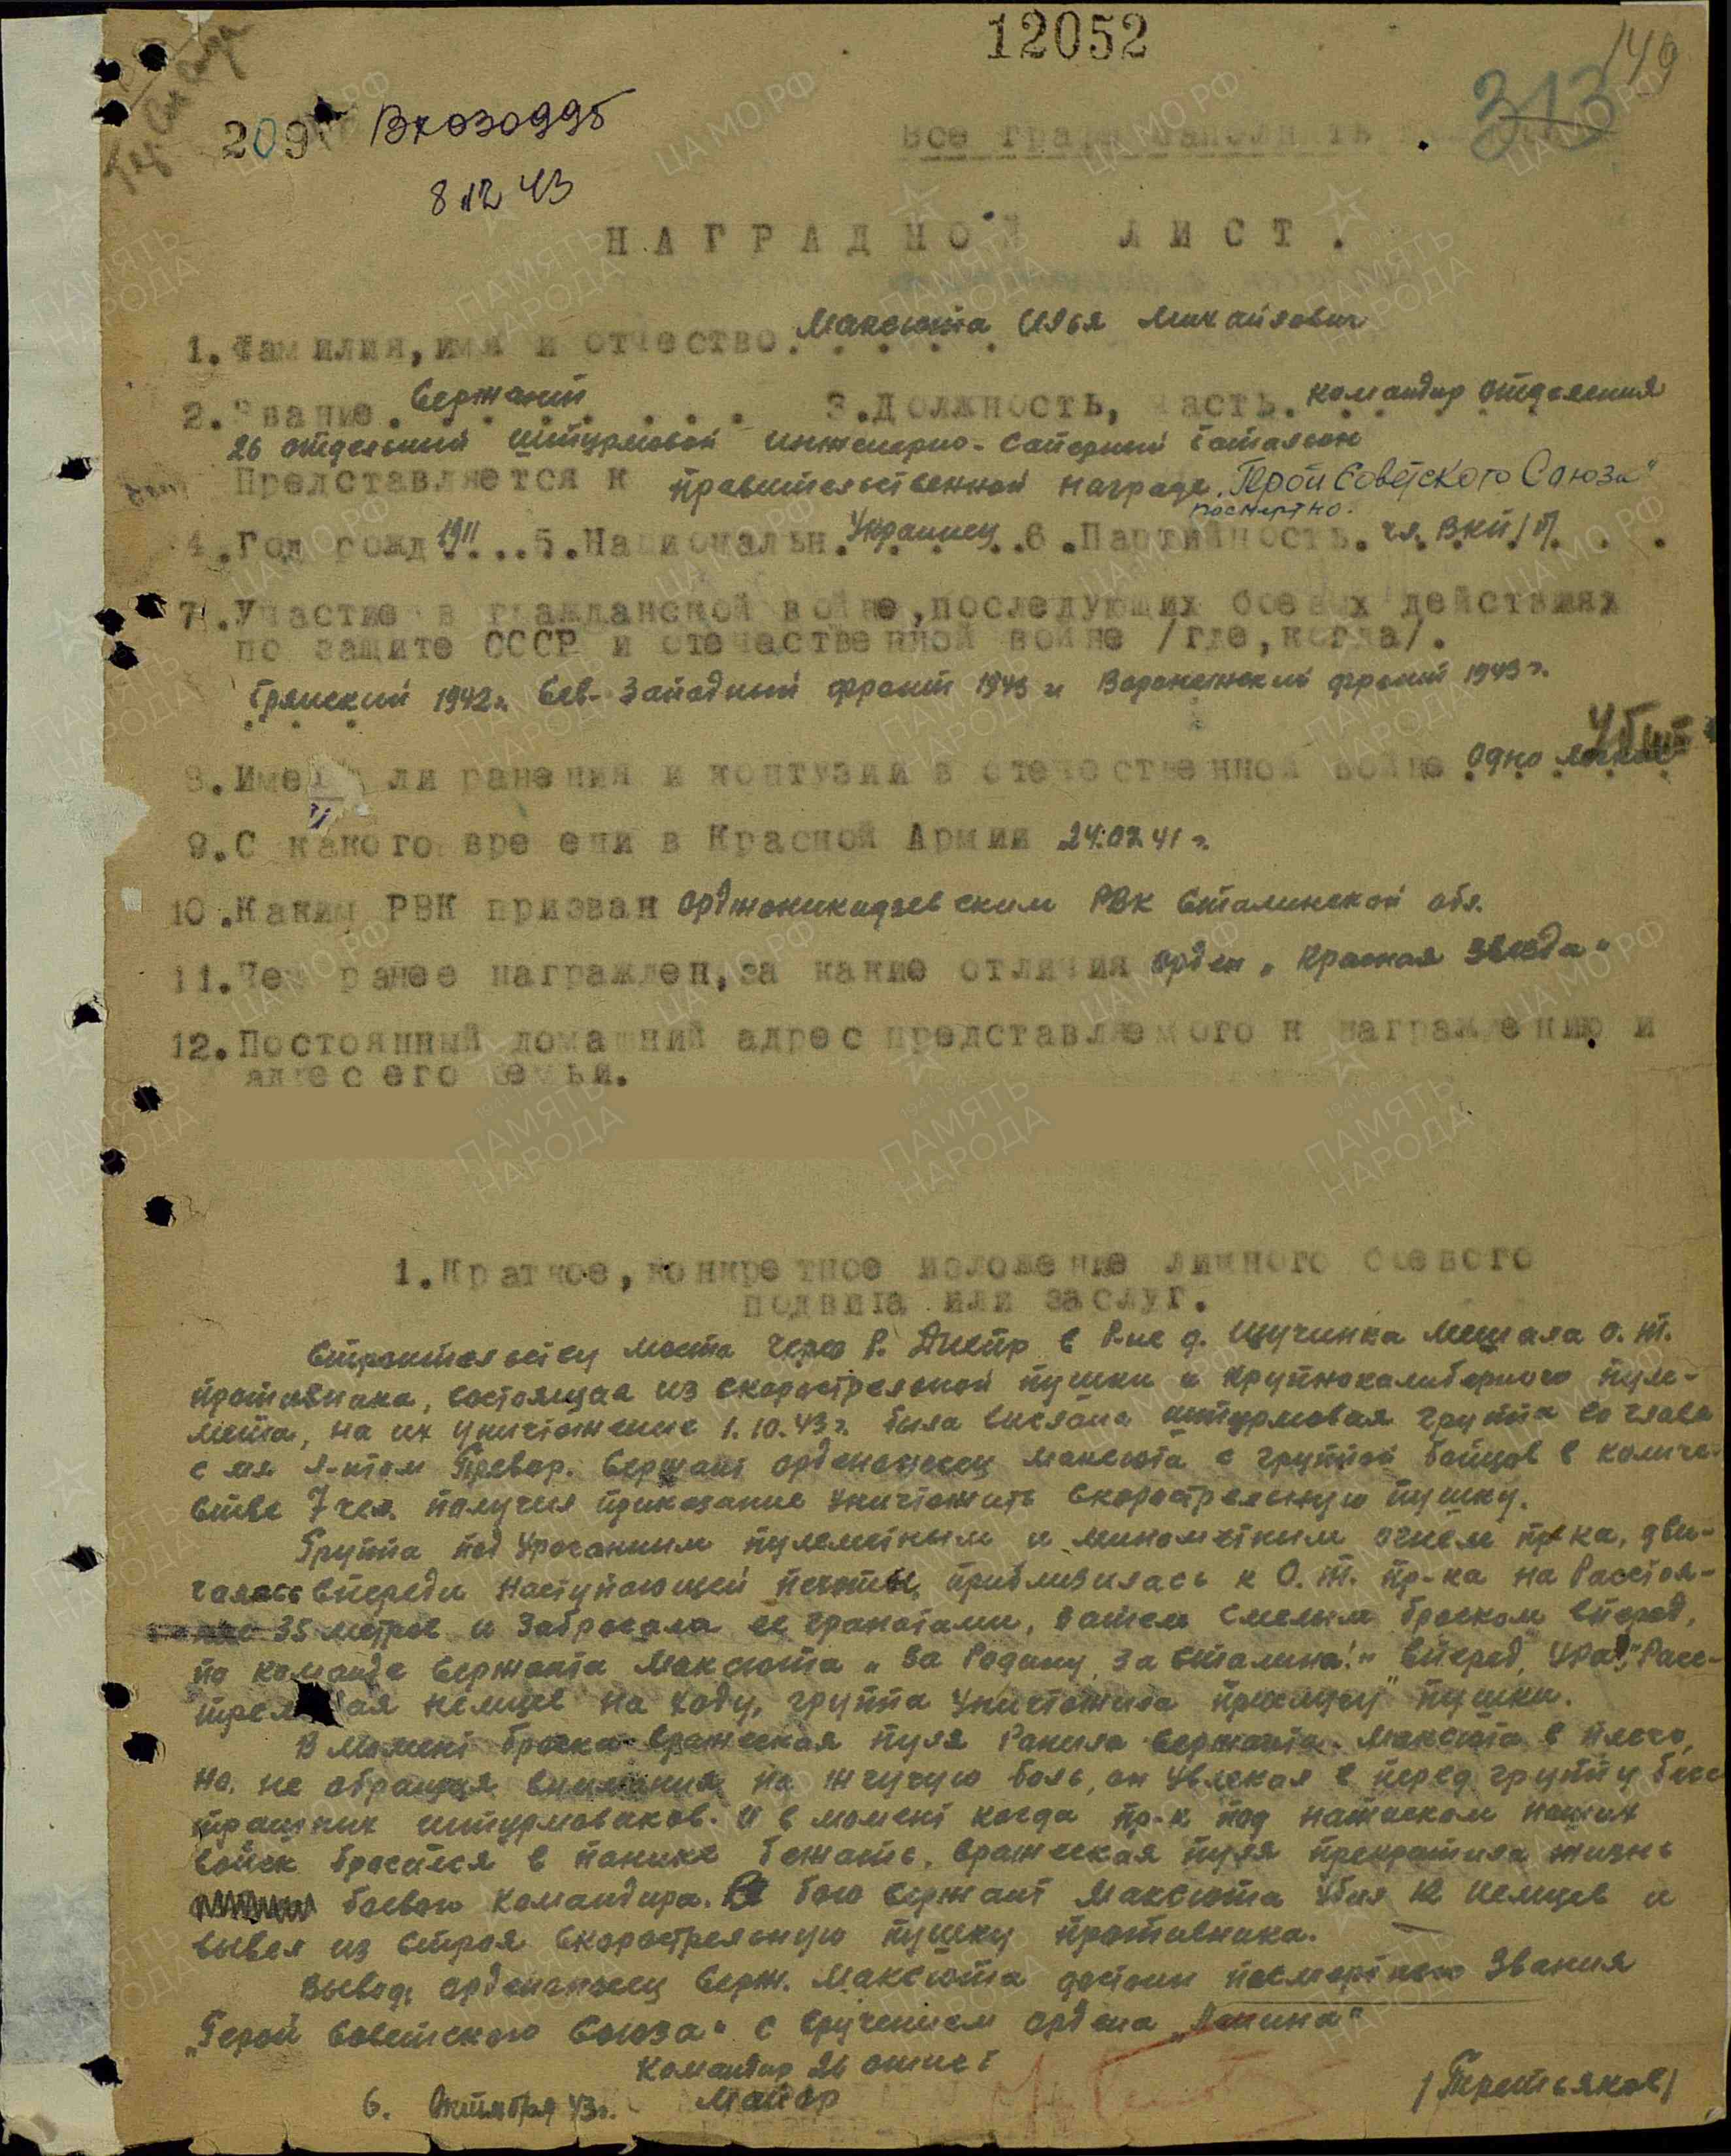 12052
149
313
209
Вх 030995
8.12.43
Все графы заполнять
НАГРАДНОЙ ЛИСТ.
1. Фамилия, имя и отчество. Максюта Илья Михайлович
2. Звание. Сержант 3. Должность, часть. командир отделения
26 отдельный штурмовой инженерно-саперный батальон
Представляется к правительственной награде „Герой Советского Союза“
посмертно.
4. Год рожд. 1911 5. Национальн. Украинец 6. Партийность. чл. ВКП/б/
7. Участие в гражданской войне, последующих боевых действиях
по защите СССР и отечественной войне /где, когда/.
Брянский 1942г. Сев-Западный фронт 1943 и Воронежский фронт 1943г.
Убит
8. Имеет ли ранения и контузии в отечественной войне одно легкое
9. С какого времени в Красной Армии 24.07.41г.
10. Каким РВК призван Орджоникидзевским РВК Сталинской обл.
11. Чем ранее награжден, за какие отличия орден „Красная Звезда“
12. Постоянный домашний адрес представляемого к награждению и
адрес его семьи.
1. Краткое, конкретное изложение личного боевого
подвига или заслуг.
Строительству моста через р. Днепр в р-не д. Щучинка мешала О.Т.
противника, состоящая из скорострельной пушки и крупнокалиберного пуле-
мета, на их уничтожение 1.10.43г. была выслана штурмовая группа во главе
с мл л-том Превор. Сержант орденоносец Максюта с группой бойцов в количе-
стве 7 чел. получил приказание уничтожить скорострельную пушку.
Группа под ураганным пулеметным и минометным огнем пр-ка, дви-
гаясь впереди наступающей пехоты, приблизилась к О.Т. пр-ка на расстоя-
ние 35 метров и забросала ее гранатами, затем смелым броском вперед,
по команде сержанта Максюта „За Родину, за Сталина!“ вперед, Ура!“ Расс-
треливая немцев на ходу, группа уничтожила прислугу пушки.
В момент броска вражеская пуля ранила сержанта Максюта в плечо,
но, не обращая внимания на жгучую боль, он увлекал вперед группу бесс-
трашных штурмовиков. И в момент когда пр-к под натиском наших
войск бросился в панике бежать, вражеская пуля прекратила жизнь
боевого командира. В бою сержант Максюта убил 12 немцев и
вывел из строя скорострельную пушку противника.
Вывод: орденоносец серж. Максюта достоин посмертного звания
„Герой Советского Союза“ с вручением ордена „Ленина“
Командир 26 ошисб
Майор /Третьяков/
6. Октября 43г.
ПАМЯТЬ НАРОДА
ЦА МО РФ